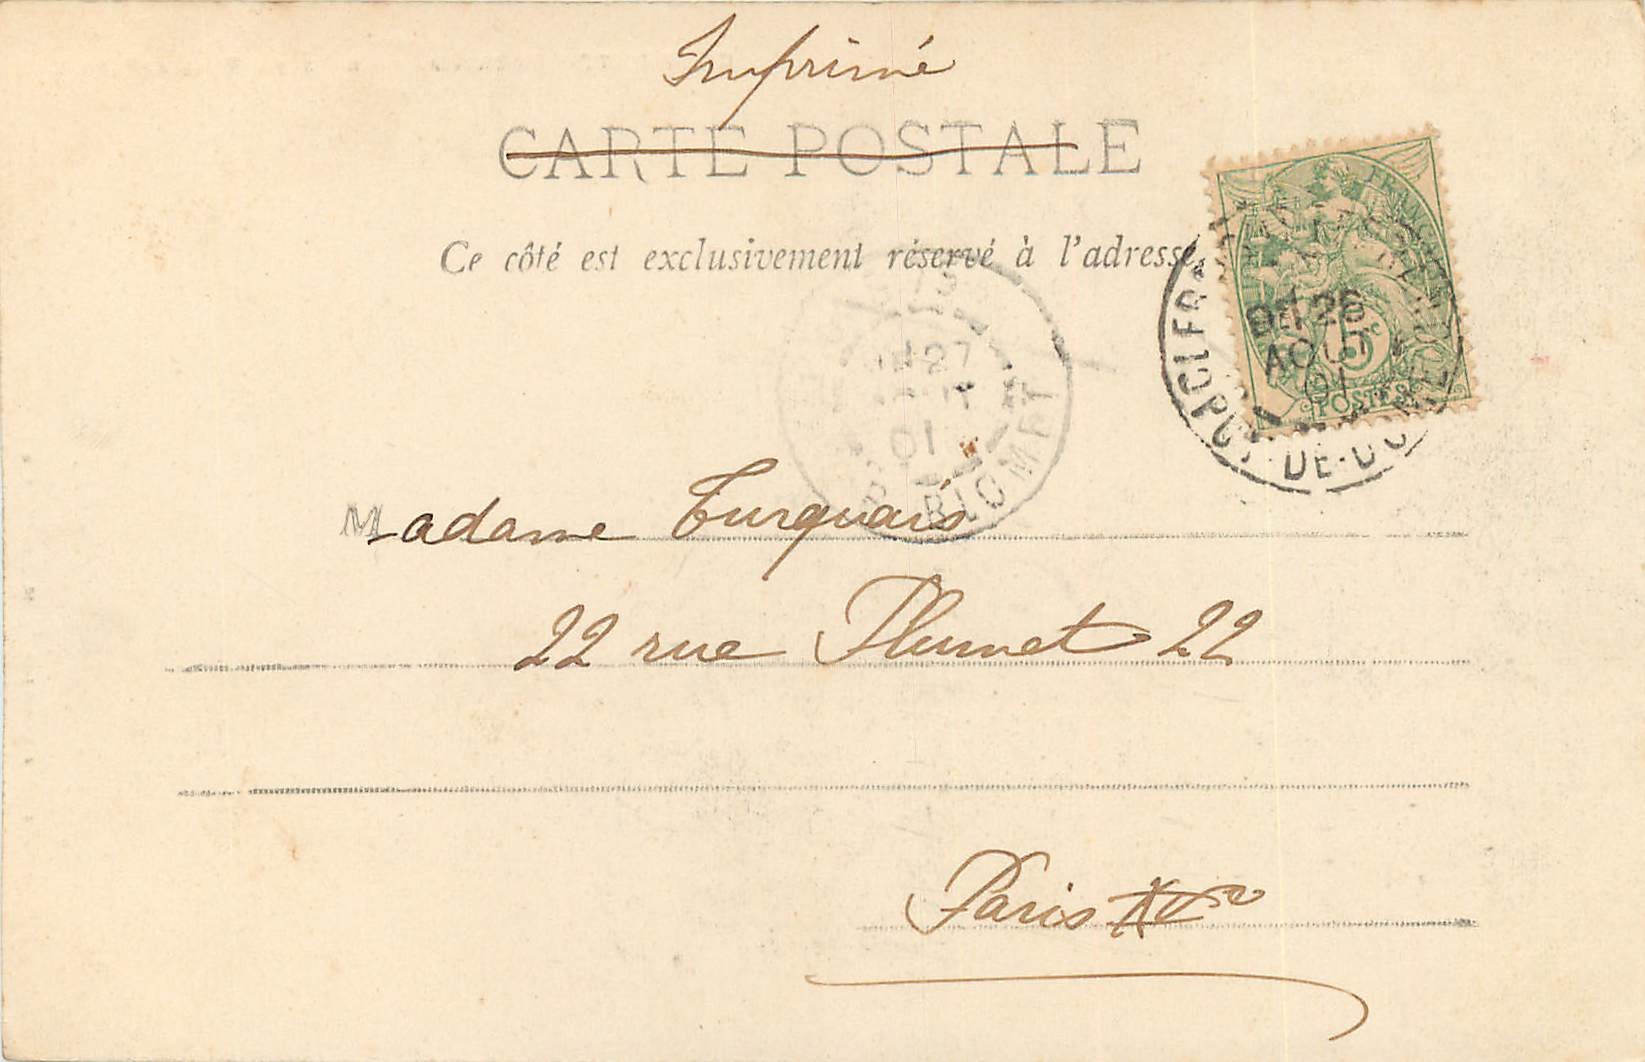 Imprimé
CARTE POSTALE
Ce côté est exclusivement réservé à l'adresse
FRANÇAISE
5c
POSTES
26
AOUT
01
DE-DOME
27
01
BLOMET
Madame Turquais
22 rue Plumet 22
Paris XVe